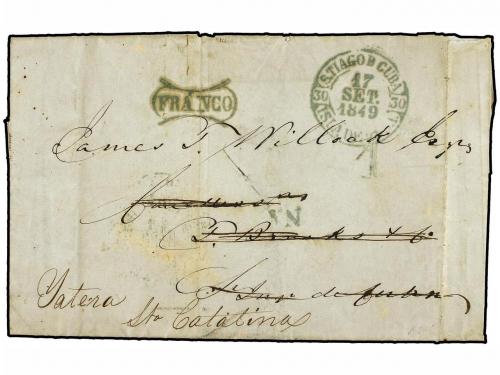 FRANCO
S.TIAGO D CUBA
17
SET.
1849
30 30
James T. Willcok Esq
T. Brooks & Co
St. Jago de Cuba
Yatera
Sta Catalina